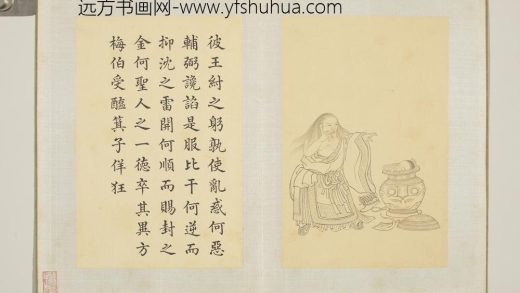 远方书画网-www.yfshuhua.com
彼王紂之躬孰使亂惑何惡
輔弼讒諂是服比干何逆而
抑沈之雷開何順而賜封之
金何聖人之一德卒其異方
梅伯受醢箕子佯狂